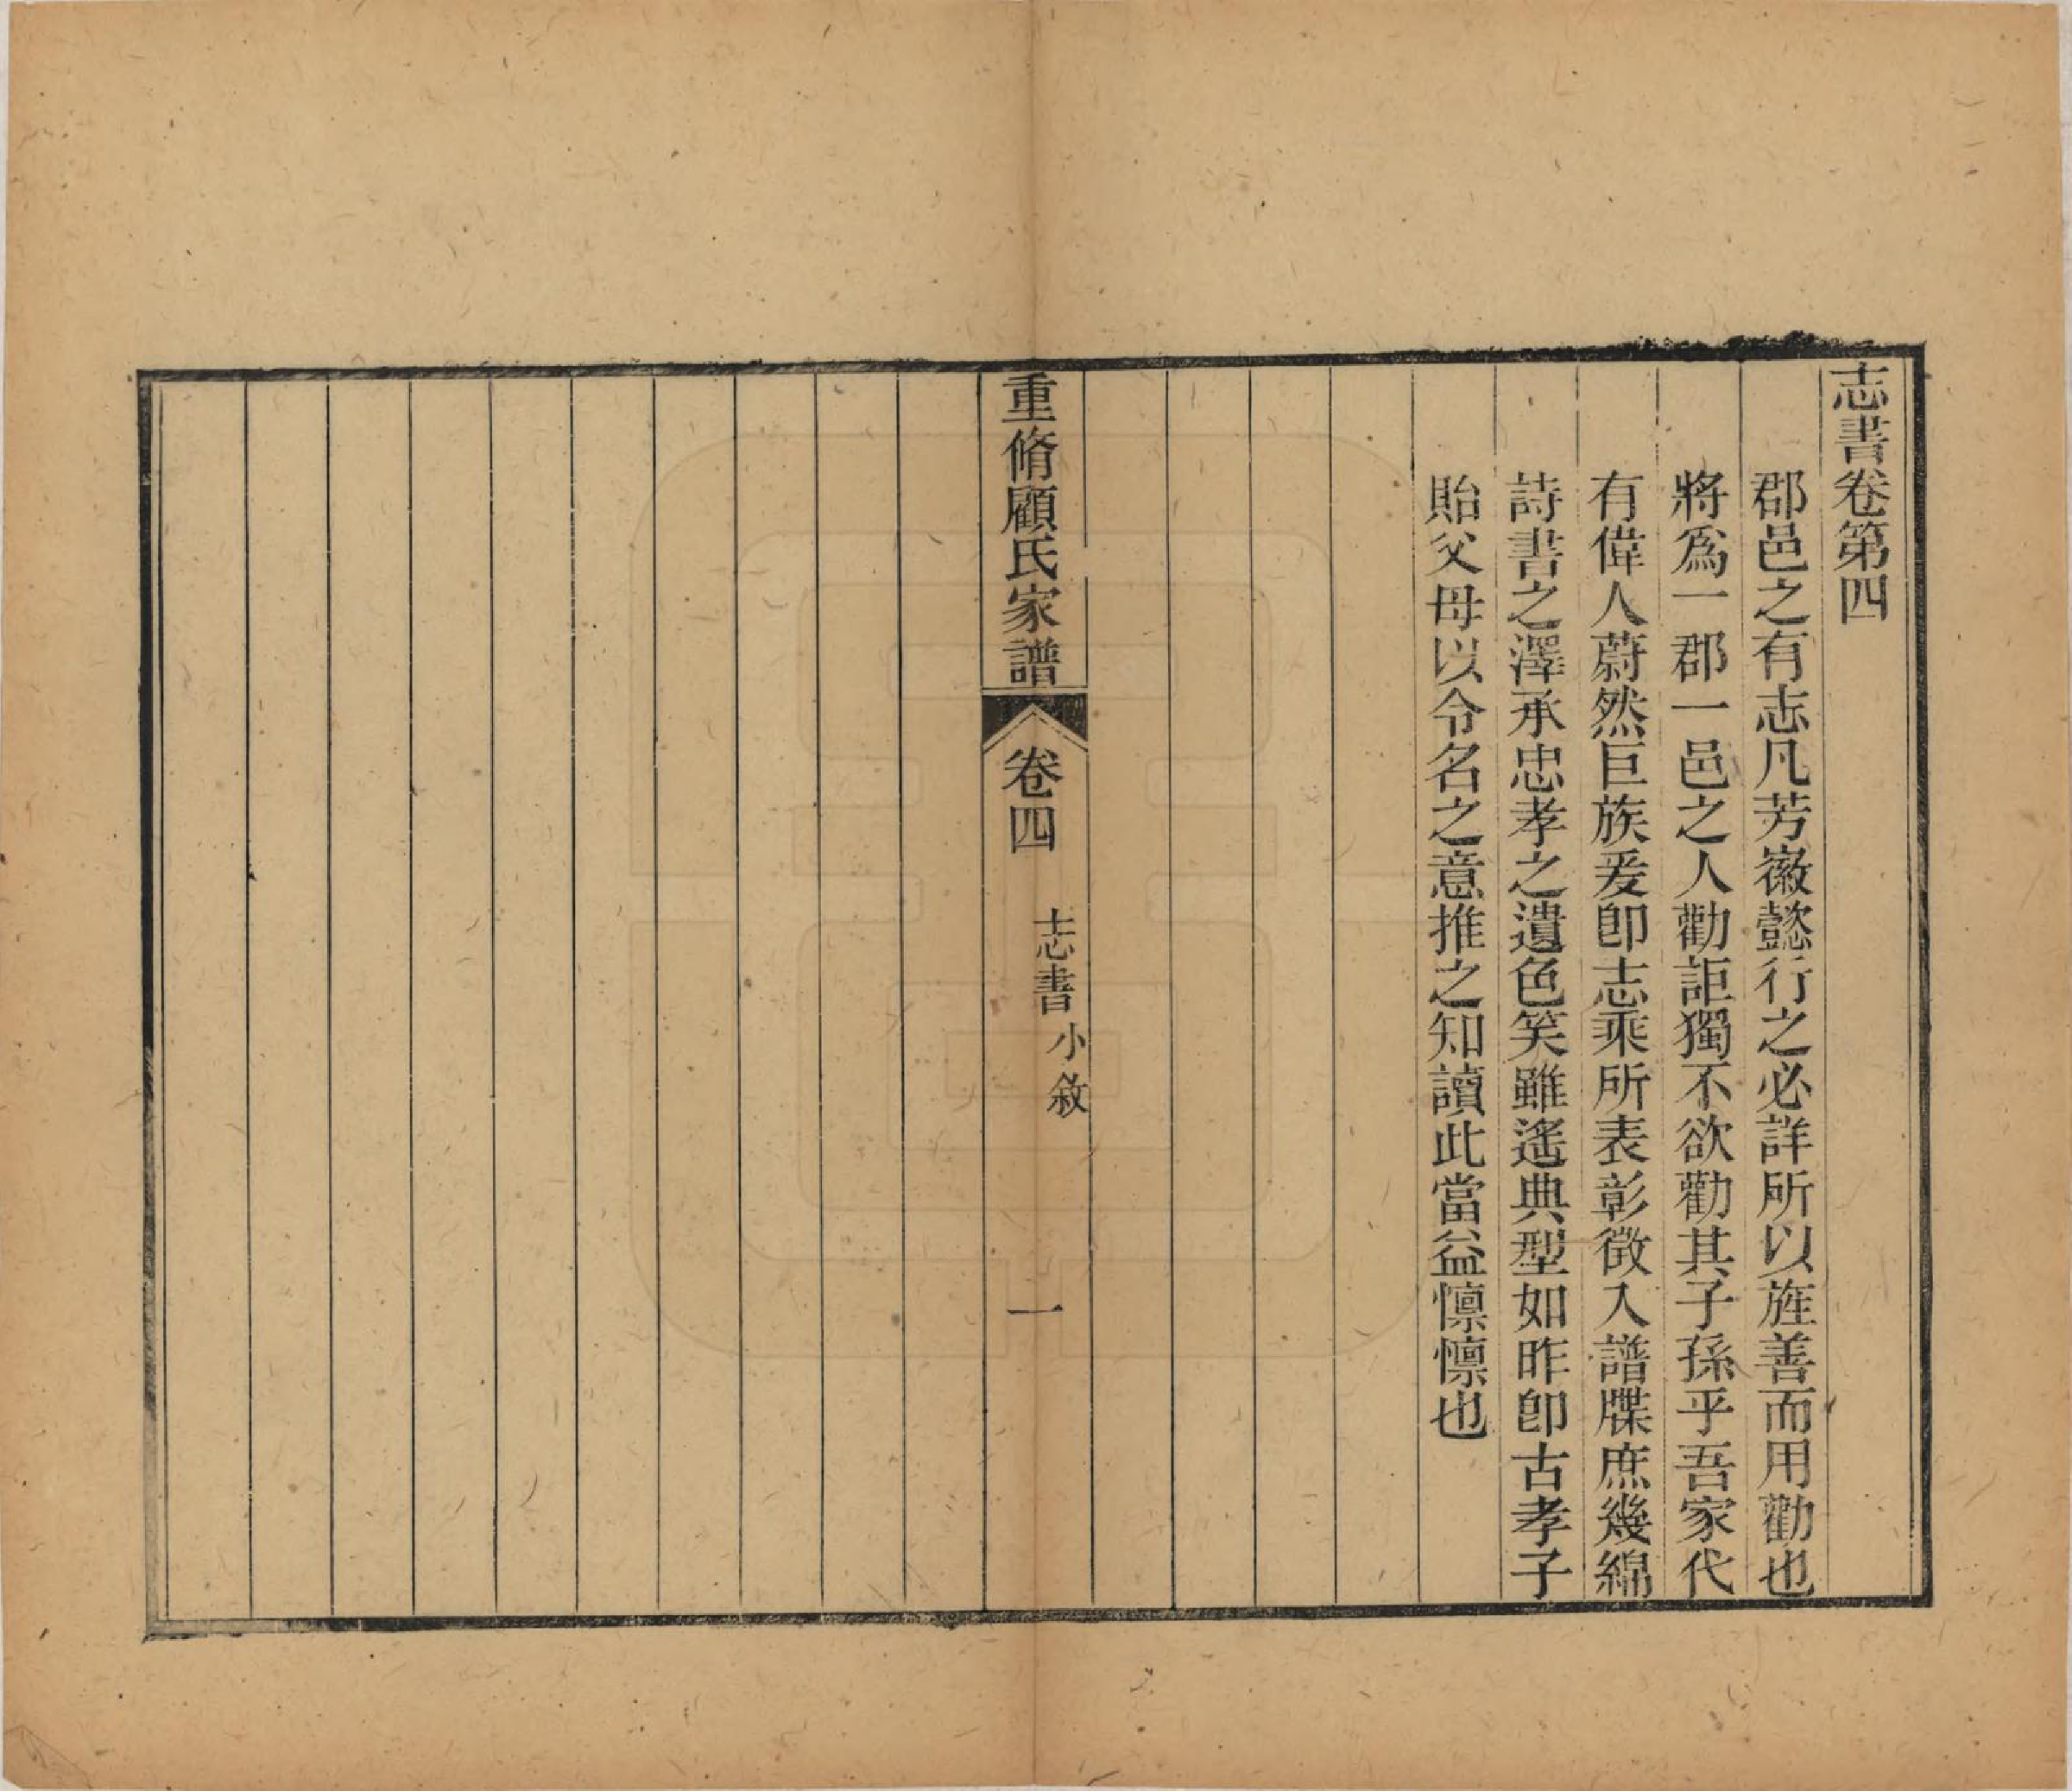 志書卷第四
郡邑之有志凡芳徽懿行之必詳所以旌善而用勸也
將爲一郡一邑之人勸詎獨不欲勸其子孫乎吾家代
有偉人蔚然巨族爰卽志乘所表彰徵入譜牒庶幾綿
詩書之澤承忠孝之遺色笑雖遙典型如昨卽古孝子
貽父母以令名之意推之知讀此當益懍懍也
重脩顧氏家譜 卷四 志書 小敘 一